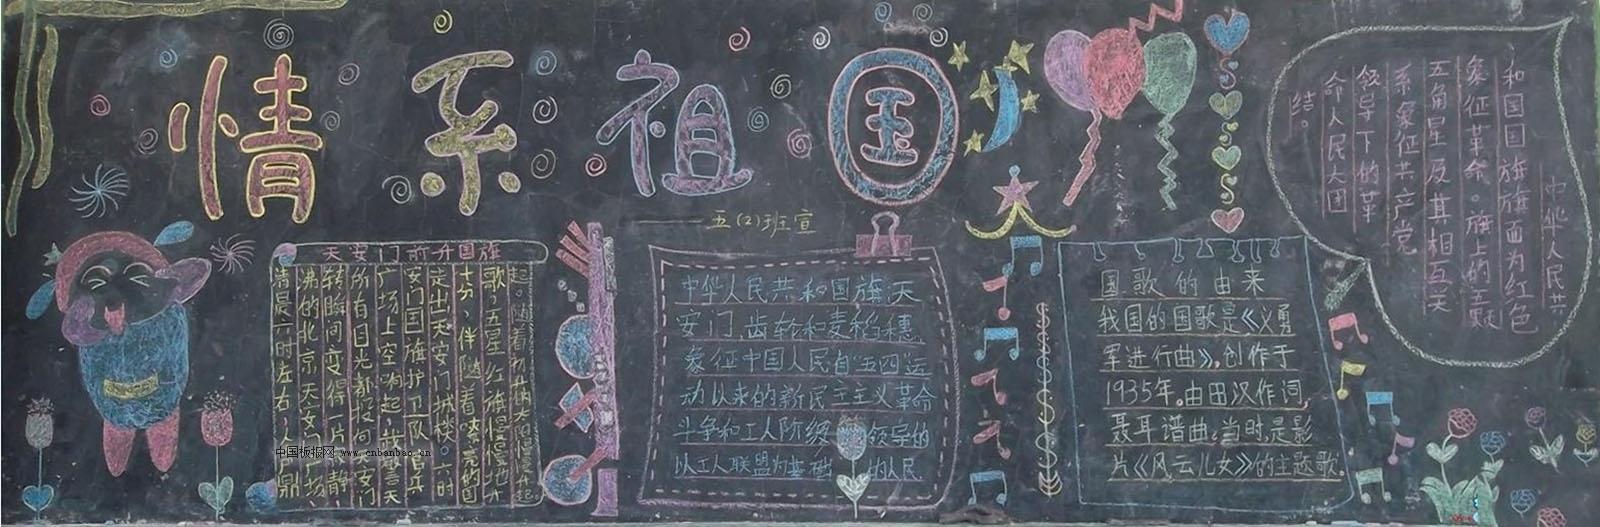 情系祖国
——五(2)班宣
天安门前升国旗
清晨六时左右,人声鼎
沸的北京天安门广场,
转瞬间变得一片静
所有目光都投向天安门
广场上空响起,
安门国旗护卫队官兵
定出天安门城楼。六时
十分,伴随着嘹亮的国
歌,五星红旗慢慢地升
起。随着初升的太阳慢慢升起。
中华人民共和国旗天
安门、齿轮和麦稻穗,
象征中国人民自“五四运
动以来的新民主主义革命
斗争和工人阶级领导的
以工人联盟为基础的人民
国歌的由来
我国的国歌是《义勇
军进行曲》,创作于
1935年。由田汉作词,
聂耳谱曲,当时是影
片《风云儿女》的主题歌.
中华人民共
和国国旗旗面为红色
象征革命。旗上的五颗
五角星及其相互关
系象征共产党
领导下的革
命人民大团
结。
中国板报网 www.cnbanbao.cn